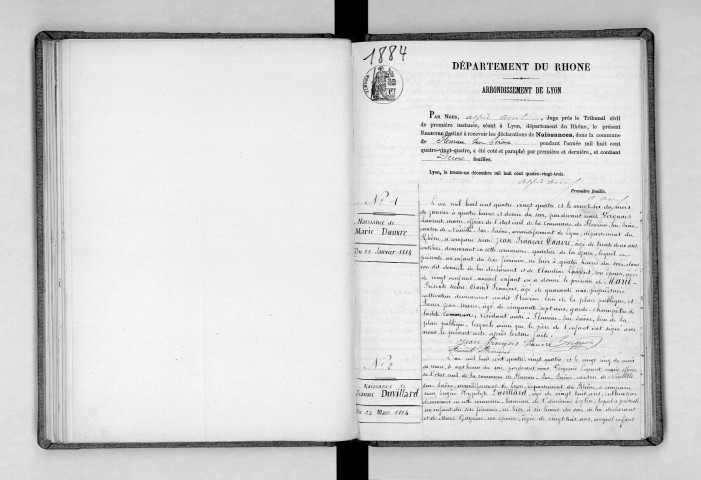 1884
DÉPARTEMENT DU RHONE
ARRONDISSEMENT DE LYON
PAR NOUS, Juge près le Tribunal civil
de première instance, séant à Lyon, département du Rhône, le présent
REGISTRE destiné à recevoir les déclarations de Naissances, dans la commune
de Fleurieu sur Saône pendant l'année mil huit cent
quatre-vingt-quatre, a été coté et paraphé par première et dernière, et contient
feuilles.
Lyon, le trente-un décembre mil huit cent quatre-vingt-trois.
Première feuille.
N° 1
Naissance de
Marie Dauvre
Du 25 Janvier 1884
L'an mil huit cent quatre vingt quatre et le vingt six du mois
de janvier à quatre heures et demie du soir, pardevant nous
Laurent, maire, officier de l'état civil de la commune de Fleurieu sur Saône,
canton de Neuville sur Saône, arrondissement de Lyon, département du
Rhône, a comparu sieur Jean François Dauvre, âgé de trente deux ans,
demeurant en cette commune, quartier de la gare, lequel a
présenté un enfant du sexe féminin, né hier à quatre heures du soir, dans
son dit domicile de lui déclarant et de Claudine Laurent, son épouse, âgée
de vingt neuf ans, auquel enfant on a donné le prénom de Marie
Présents sieurs Benoit François, âgé de quarante ans, propriétaire
cultivateur demeurant audit Fleurieu, lieu de la place publique, et
Jean Marie, âgé de cinquante sept ans, garde champêtre de
ladite commune, résidant audit Fleurieu sur Saône, lieu de la
place publique, lesquels ainsi que le père de l'enfant ont signé avec
nous le présent acte après lecture faite.
Jean François Dauvre
Benoit François
N° 2
Naissance de
Jeanne Duvillard
Du 24 Mars 1884
L'an mil huit cent quatre vingt quatre et le vingt cinq du mois
de mars, à sept heures du soir, pardevant nous Laurent, maire officier
de l'état civil de la commune de Fleurieu sur Saône, canton de Neuville
sur Saône, arrondissement de Lyon, département du Rhône, a comparu
sieur Hippolyte Duvillard, âgé de vingt huit ans, cultivateur
demeurant en cette commune, hameau de l'ancienne Eglise, lequel a présenté
un enfant du sexe féminin, né hier, à heures du soir de lui déclarant
et de Marie son épouse, âgée de vingt trois ans, auquel enfant